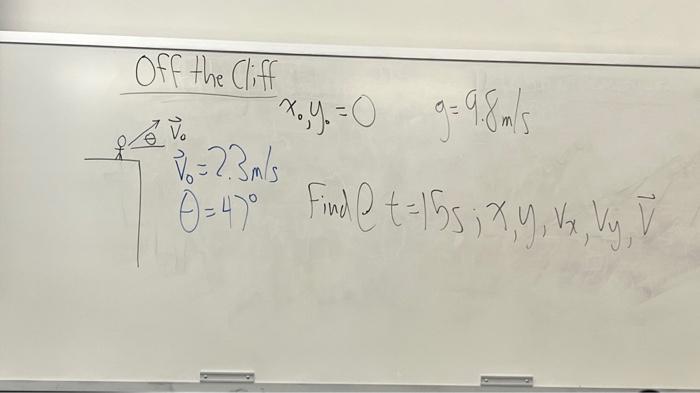 Off the Cliff
x₀, y₀ = 0
g = 9.8 m/s
θ V⃗₀
V⃗₀ = 2.3 m/s
θ = 47°
Find @ t = 15s ; x, y, Vx, Vy, V⃗